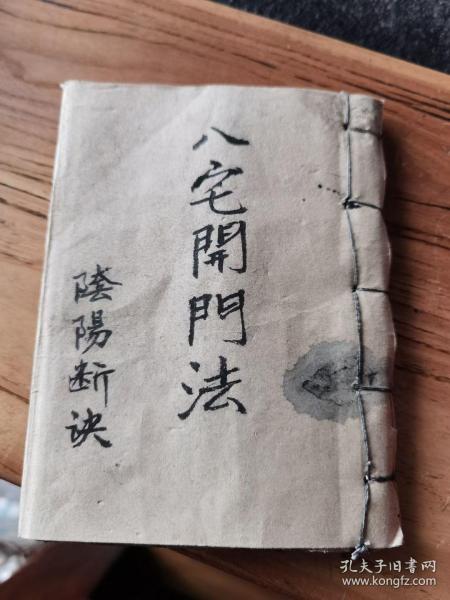 八宅開門法
陰陽断诀
孔夫子旧书网
www.kongfz.com